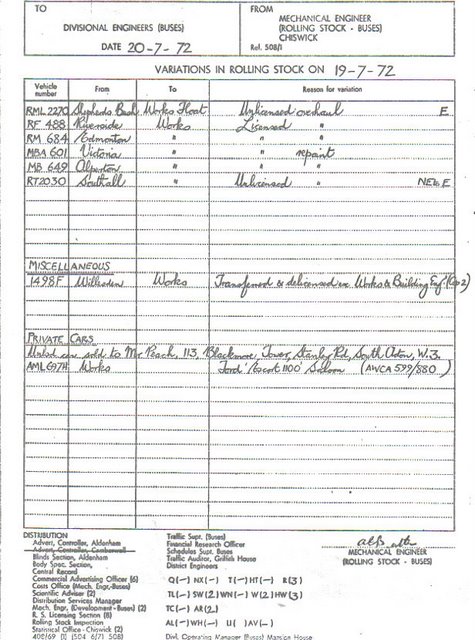 TO
DIVISIONAL ENGINEERS (BUSES)
DATE 20-7-72
FROM
MECHANICAL ENGINEER
(ROLLING STOCK - BUSES)
CHISWICK
Ref. 508/1
VARIATIONS IN ROLLING STOCK ON 19-7-72
Vehicle number From To Reason for variation
RML 2270 Shepherds Bush Works Float Unlicensed overhaul E
RF 488 Riverside Works Licensed "
RM 684 Edmonton " " "
MBA 601 Victoria " " repaint
MB 649 Alperton " " "
RT2030 Southall " Unlicensed " NEL E
MISCELLANEOUS
1498F Willesden Works Transferred & delicensed ex Works & Building Eng.
PRIVATE CARS
sold to Mr Peach, 113, Blackmore Tower, Stanley Rd, South Acton, W.3.
AML 697H Works Ford 'Escort 1100' Saloon (AWCA 599/880)
DISTRIBUTION
Advert. Controller, Aldenham
Advert. Controller, Camberwell
Blinds Section, Aldenham
Body Spec. Section,
Central Record
Commercial Advertising Officer (6)
Costs Office (Mech. Engr.-Buses)
Scientific Adviser (2)
Distribution Services Manager
Mech. Engr. (Development - Buses) (2)
R. S. Licensing Section (8)
Rolling Stock Inspection
Statistical Office - Chiswick (2)
Traffic Supt. (Buses)
Financial Research Officer
Schedules Supt. Buses
Traffic Auditor, Griffith House
District Engineers
Q(—) NX(—) T(—) HT(—) R(3)
TL(—) SW(2) WN(—) W(2) HW(3)
TC(—) AR(2)
AL(—) WH(—) U( ) AV(—)
Divl. Operating Manager (Buses) Mansion House
MECHANICAL ENGINEER
(ROLLING STOCK - BUSES)